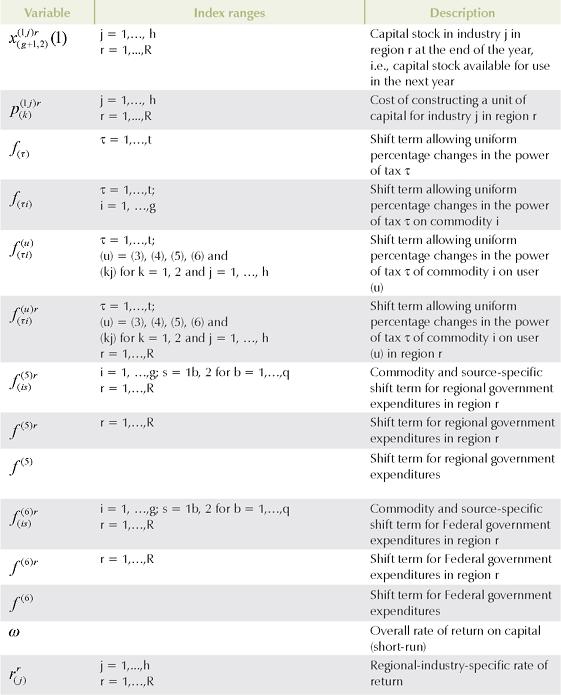 Variable Index ranges Description
x_{(g+1,2)}^{(1j)r}(1) j = 1,…, h Capital stock in industry j in
r = 1,...,R region r at the end of the year,
i.e., capital stock available for use
in the next year
p_{(k)}^{(1j)r} j = 1,…, h Cost of constructing a unit of
r = 1,...,R capital for industry j in region r
f_{(τ)} τ = 1,…,t Shift term allowing uniform
percentage changes in the power
of tax τ
f_{(τi)} τ = 1,…,t; Shift term allowing uniform
i = 1, …,g percentage changes in the power
of tax τ on commodity i
f_{(τi)}^{(u)} τ = 1,…,t; Shift term allowing uniform
(u) = (3), (4), (5), (6) and percentage changes in the power
(kj) for k = 1, 2 and j = 1, …, h of tax τ of commodity i on user
(u)
f_{(τi)}^{(u)r} τ = 1,…,t; Shift term allowing uniform
(u) = (3), (4), (5), (6) and percentage changes in the power
(kj) for k = 1, 2 and j = 1, …, h of tax τ of commodity i on user
r = 1,…,R (u) in region r
f_{(is)}^{(5)r} i = 1, …,g; s = 1b, 2 for b = 1,…,q Commodity and source-specific
r = 1,…,R shift term for regional government
expenditures in region r
f^{(5)r} r = 1,…,R Shift term for regional government
expenditures in region r
f^{(5)} Shift term for regional government
expenditures
f_{(is)}^{(6)r} i = 1, …,g; s = 1b, 2 for b = 1,…,q Commodity and source-specific
r = 1,…,R shift term for Federal government
expenditures in region r
f^{(6)r} r = 1,…,R Shift term for Federal government
expenditures in region r
f^{(6)} Shift term for Federal government
expenditures
ω Overall rate of return on capital
(short-run)
r_{(j)}^{r} j = 1,...,h Regional-industry-specific rate of
r = 1,…,R return